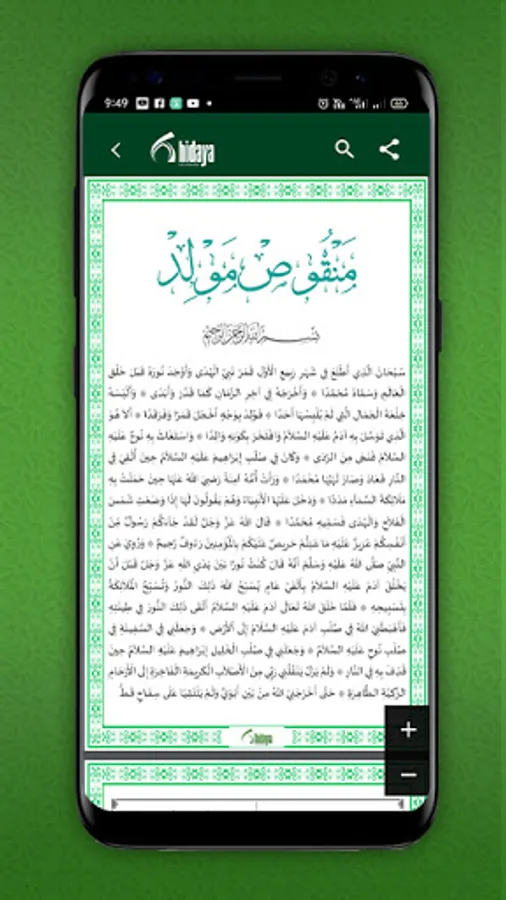 9:49
hidaya
مَنْقُوصْ مَوْلِدْ
بِسْمِ اللهِ الرَّحْمٰنِ الرَّحِيْمِ
سُبْحَانَ الَّذِي أَطْلَعَ فِي شَهْرِ رَبِيعِ الْأَوَّلِ قَمَرَ نَبِيِّ الْهُدَى وَأَوْجَدَ نُورَهُ قَبْلَ خَلْقِ
الْعَالَمِ وَسَمَّاهُ مُحَمَّدًا * وَأَخْرَجَهُ فِي آخِرِ الزَّمَانِ كَمَا قَدَّرَ وَأَبْدَى * وَأَلْبَسَهُ
خِلْعَةَ الْجَمَالِ الَّتِي لَمْ يُلْبِسْهَا أَحَدًا * فَوُلِدَ بِوَجْهٍ أَخْجَلَ قَمَرًا وَفَرْقَدًا * أَلَا هُوَ
الَّذِي تَوَسَّلَ بِهِ آدَمُ عَلَيْهِ السَّلَامُ وَافْتَخَرَ بِكَوْنِهِ وَالِدًا * وَاسْتَغَاثَ بِهِ نُوحٌ عَلَيْهِ
السَّلَامُ فَنَجَى مِنَ الرَّدَى * وَكَانَ فِي صُلْبِ إِبْرَاهِيمَ عَلَيْهِ السَّلَامُ حِينَ أُلْقِيَ فِي
النَّارِ فَعَادَ وَصَارَ لَهِيبُهَا مُخْمَدًا * وَرَأَتْ أُمُّهُ آمِنَةُ رَضِيَ اللهُ عَنْهَا حِينَ حَمَلَتْ بِهِ
مَلَائِكَةَ السَّمَاءِ مَدَدًا * وَدَخَلَ عَلَيْهَا الْأَنْبِيَاءُ وَهُمْ يَقُولُونَ لَهَا إِذَا وَضَعْتِ شَمْسَ
الْفَلَاحِ وَالْهُدَى فَسَمِّيهِ مُحَمَّدًا * قَالَ اللهُ عَزَّ وَجَلَّ لَقَدْ جَاءَكُمْ رَسُولٌ مِنْ
أَنْفُسِكُمْ عَزِيزٌ عَلَيْهِ مَا عَنِتُّمْ حَرِيصٌ عَلَيْكُمْ بِالْمُؤْمِنِينَ رَءُوفٌ رَحِيمٌ * وَرُوِيَ عَنِ
النَّبِيِّ صَلَّى اللهُ عَلَيْهِ وَسَلَّمَ أَنَّهُ قَالَ كُنْتُ نُورًا بَيْنَ يَدَيِ اللهِ عَزَّ وَجَلَّ قَبْلَ أَنْ
يَخْلُقَ آدَمَ عَلَيْهِ السَّلَامُ بِأَلْفَيْ عَامٍ يُسَبِّحُ اللهَ ذَلِكَ النُّورُ وَتُسَبِّحُ الْمَلَائِكَةُ
بِتَسْبِيحِهِ * فَلَمَّا خَلَقَ اللهُ تَعَالَى آدَمَ عَلَيْهِ السَّلَامُ أَلْقَى ذَلِكَ النُّورَ فِي طِينَتِهِ
فَأَهْبَطَنِيَ اللهُ فِي صُلْبِ آدَمَ عَلَيْهِ السَّلَامُ إِلَى الْأَرْضِ * وَجَعَلَنِي فِي السَّفِينَةِ فِي
صُلْبِ نُوحٍ عَلَيْهِ السَّلَامُ * وَجَعَلَنِي فِي صُلْبِ الْخَلِيلِ إِبْرَاهِيمَ عَلَيْهِ السَّلَامُ حِينَ
قُذِفَ بِهِ فِي النَّارِ * وَلَمْ يَزَلْ يَنْقُلُنِي رَبِّي مِنَ الْأَصْلَابِ الْكَرِيمَةِ الْفَاخِرَةِ إِلَى الْأَرْحَامِ
الزَّكِيَّةِ الطَّاهِرَةِ * حَتَّى أَخْرَجَنِيَ اللهُ مِنْ بَيْنِ أَبَوَيَّ وَلَمْ يَلْتَقِيَا عَلَى سِفَاحٍ قَطُّ
hidaya